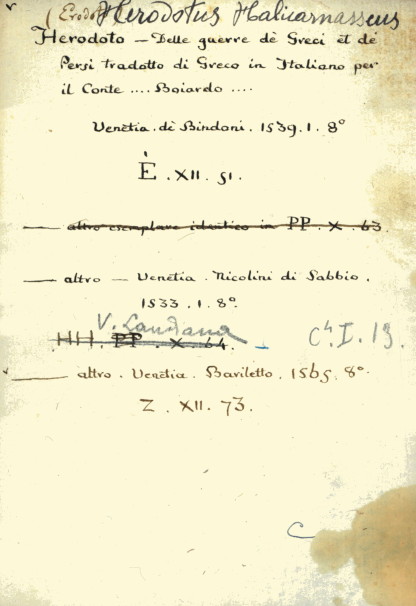 (Erodo Herodotus Halicarnasseus
Herodoto – Delle guerre dè Greci et dè
Persi tradotto di Greco in Italiano per
il Conte .... Boiardo ....
Venetia. dè Bindoni. 1539. 1. 8°
È. XII. 51.
altro esemplare identico in PP. X. 63
altro – Venetia. Nicolini di Sabbio.
1533. 1. 8°.
V. Landiana
HH. PP. X. 64. – C^h. I. 13.
altro. Venetia. Bariletto. 1565. 8°.
Z. XII. 73.
C